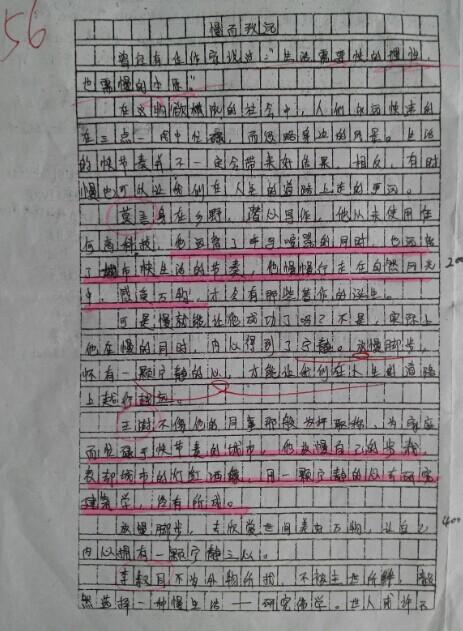 56
慢而致远
曾经有位作家说过:"生活需要快的理想,
也需慢的
在这物欲横流的社会中,人们永远快速的
在三点一线中忙碌,而忽略身边的风景。生活
的快节奏并不一定会带来好结果,相反,有时
慢也可以让我们在人生的道路上走的更远。
莫言身在乡野,潜心写作,他从未使用任
何高科技,他远离了手机喧嚣的同时,也远离
了城市快生活的节奏,他慢慢行走在自然风光
200
中,感受万物,才会有那些著作的诞生。
可是慢就能让他成功了吗?不是,实际上
他在慢的同时,内心得到了宁静。放慢脚步,
怀有一颗宁静的心,才能让我们在人生的道路
上越行越远。
王澍不像他的同事那般,为家庭
而忙碌于快节奏的城市,他放慢自己的步伐,
忘却城市的灯红酒绿,用一颗宁静的心去研究
建筑学,终有所成。
放慢脚步,去欣赏世间美好万物,让自己
400
内心拥有一颗宁静之心。
不为外物所扰,不被主世所
然选择一种慢生活——研究儒学。世人或许会